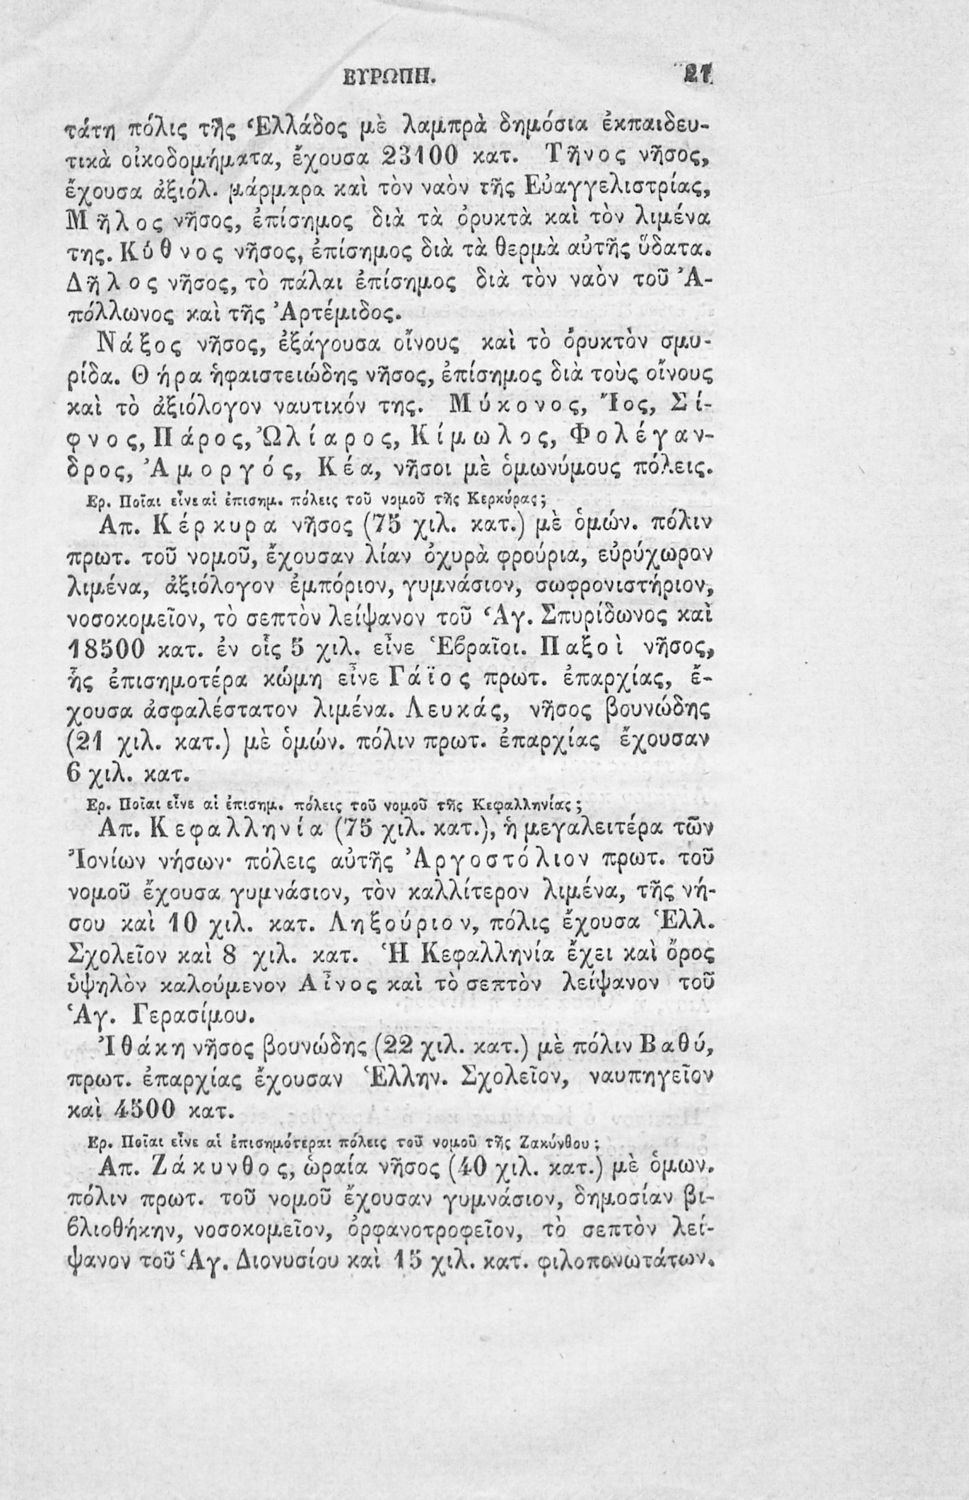 ΕΥΡΩΠΗ. 21
τάτη πόλις τῆς Ἑλλάδος μὲ λαμπρὰ δημόσια ἐκπαιδευ-
τικὰ οἰκοδομήματα, ἔχουσα 23100 κατ. Τῆνος νῆσος,
ἔχουσα ἀξιόλ. μάρμαρα καὶ τὸν ναὸν τῆς Εὐαγγελιστρίας,
Μῆλος νῆσος, ἐπίσημος διὰ τὰ ὀρυκτὰ καὶ τὸν λιμένα
της. Κύθνος νῆσος, ἐπίσημος διὰ τὰ θερμὰ αὐτῆς ὕδατα.
Δῆλος νῆσος, τὸ πάλαι ἐπίσημος διὰ τὸν ναὸν τοῦ Ἀ-
πόλλωνος καὶ τῆς Ἀρτέμιδος.
Νάξος νῆσος, ἐξάγουσα οἴνους καὶ τὸ ὀρυκτὸν σμυ-
ρίδα. Θήρα ἡφαιστειώδης νῆσος, ἐπίσημος διὰ τοὺς οἴνους
καὶ τὸ ἀξιόλογον ναυτικόν της. Μύκονος, Ἴος, Σί-
φνος, Πάρος, Ὠλίαρος, Κίμωλος, Φολέγαν-
δρος, Ἀμοργός, Κέα, νῆσοι μὲ ὁμωνύμους πόλεις.
Ερ. Ποῖαι εἶνε αἱ ἐπισημ. πόλεις τοῦ νομοῦ τῆς Κερκύρας;
Απ. Κέρκυρα νῆσος (75 χιλ. κατ.) μὲ ὁμών. πόλιν
πρωτ. τοῦ νομοῦ, ἔχουσαν λίαν ὀχυρὰ φρούρια, εὐρύχωρον
λιμένα, ἀξιόλογον ἐμπόριον, γυμνάσιον, σωφρονιστήριον,
νοσοκομεῖον, τὸ σεπτὸν λείψανον τοῦ Ἁγ. Σπυρίδωνος καὶ
18500 κατ. ἐν οἷς 5 χιλ. εἶνε Ἑβραῖοι. Παξοὶ νῆσος,
ἧς ἐπισημοτέρα κώμη εἶνε Γάϊος πρωτ. ἐπαρχίας, ἔ-
χουσα ἀσφαλέστατον λιμένα. Λευκάς, νῆσος βουνώδης
(21 χιλ. κατ.) μὲ ὁμών. πόλιν πρωτ. ἐπαρχίας ἔχουσαν
6 χιλ. κατ.
Ερ. Ποῖαι εἶνε αἱ ἐπισημ. πόλεις τοῦ νομοῦ τῆς Κεφαλληνίας;
Απ. Κεφαλληνία (75 χιλ. κατ.), ἡ μεγαλειτέρα τῶν
Ἰονίων νήσων· πόλεις αὐτῆς Ἀργοστόλιον πρωτ. τοῦ
νομοῦ ἔχουσα γυμνάσιον, τὸν καλλίτερον λιμένα, τῆς νή-
σου καὶ 10 χιλ. κατ. Ληξούριον, πόλις ἔχουσα Ἑλλ.
Σχολεῖον καὶ 8 χιλ. κατ. Ἡ Κεφαλληνία ἔχει καὶ ὄρος
ὑψηλὸν καλούμενον Αἶνος καὶ τὸ σεπτὸν λείψανον τοῦ
Ἁγ. Γερασίμου.
Ἰθάκη νῆσος βουνώδης (22 χιλ. κατ.) μὲ πόλιν Βαθύ,
πρωτ. ἐπαρχίας ἔχουσαν Ἑλλην. Σχολεῖον, ναυπηγεῖον
καὶ 4500 κατ.
Ερ. Ποῖαι εἶνε αἱ ἐπισημότεραι πόλεις τοῦ νομοῦ τῆς Ζακύνθου;
Απ. Ζάκυνθος, ὡραία νῆσος (40 χιλ. κατ.) μὲ ὁμων.
πόλιν πρωτ. τοῦ νομοῦ ἔχουσαν γυμνάσιον, δημοσίαν βι-
βλιοθήκην, νοσοκομεῖον, ὀρφανοτροφεῖον, τὸ σεπτὸν λεί-
ψανον τοῦ Ἁγ. Διονυσίου καὶ 15 χιλ. κατ. φιλοπονωτάτων.